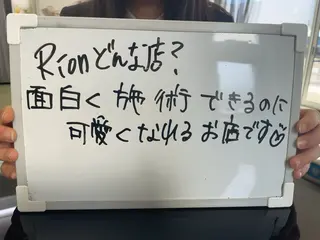 Rionどんな店?
面白く施術できるのに
可愛くなれるお店です☺